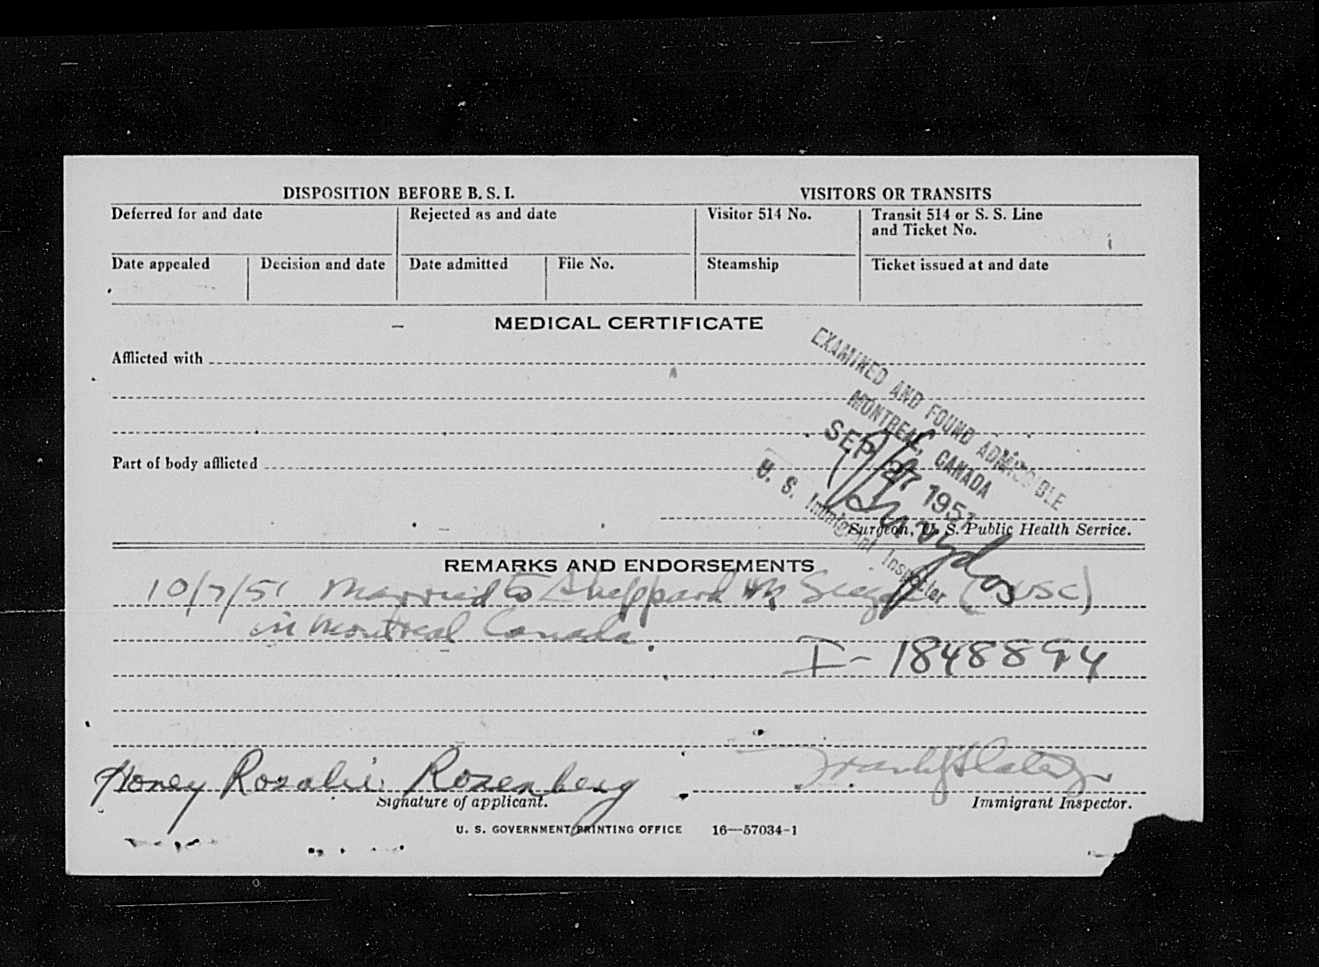 DISPOSITION BEFORE B. S. I.
VISITORS OR TRANSITS
Deferred for and date
Rejected as and date
Visitor 514 No.
Transit 514 or S. S. Line
and Ticket No.
Date appealed
Decision and date
Date admitted
File No.
Steamship
Ticket issued at and date
MEDICAL CERTIFICATE
Afflicted with
EXAMINED AND FOUND ADMISSIBLE
MONTREAL, CANADA
SEP 27 1951
U. S. Immigrant Inspector
Part of body afflicted
Surgeon, U. S. Public Health Service.
REMARKS AND ENDORSEMENTS
10/7/51 Married to Sheppard (USC)
in Montreal Canada.
I-1848894
Honey Rosalie Rosenberg
Signature of applicant.
Immigrant Inspector.
U. S. GOVERNMENT PRINTING OFFICE 16—57034-1